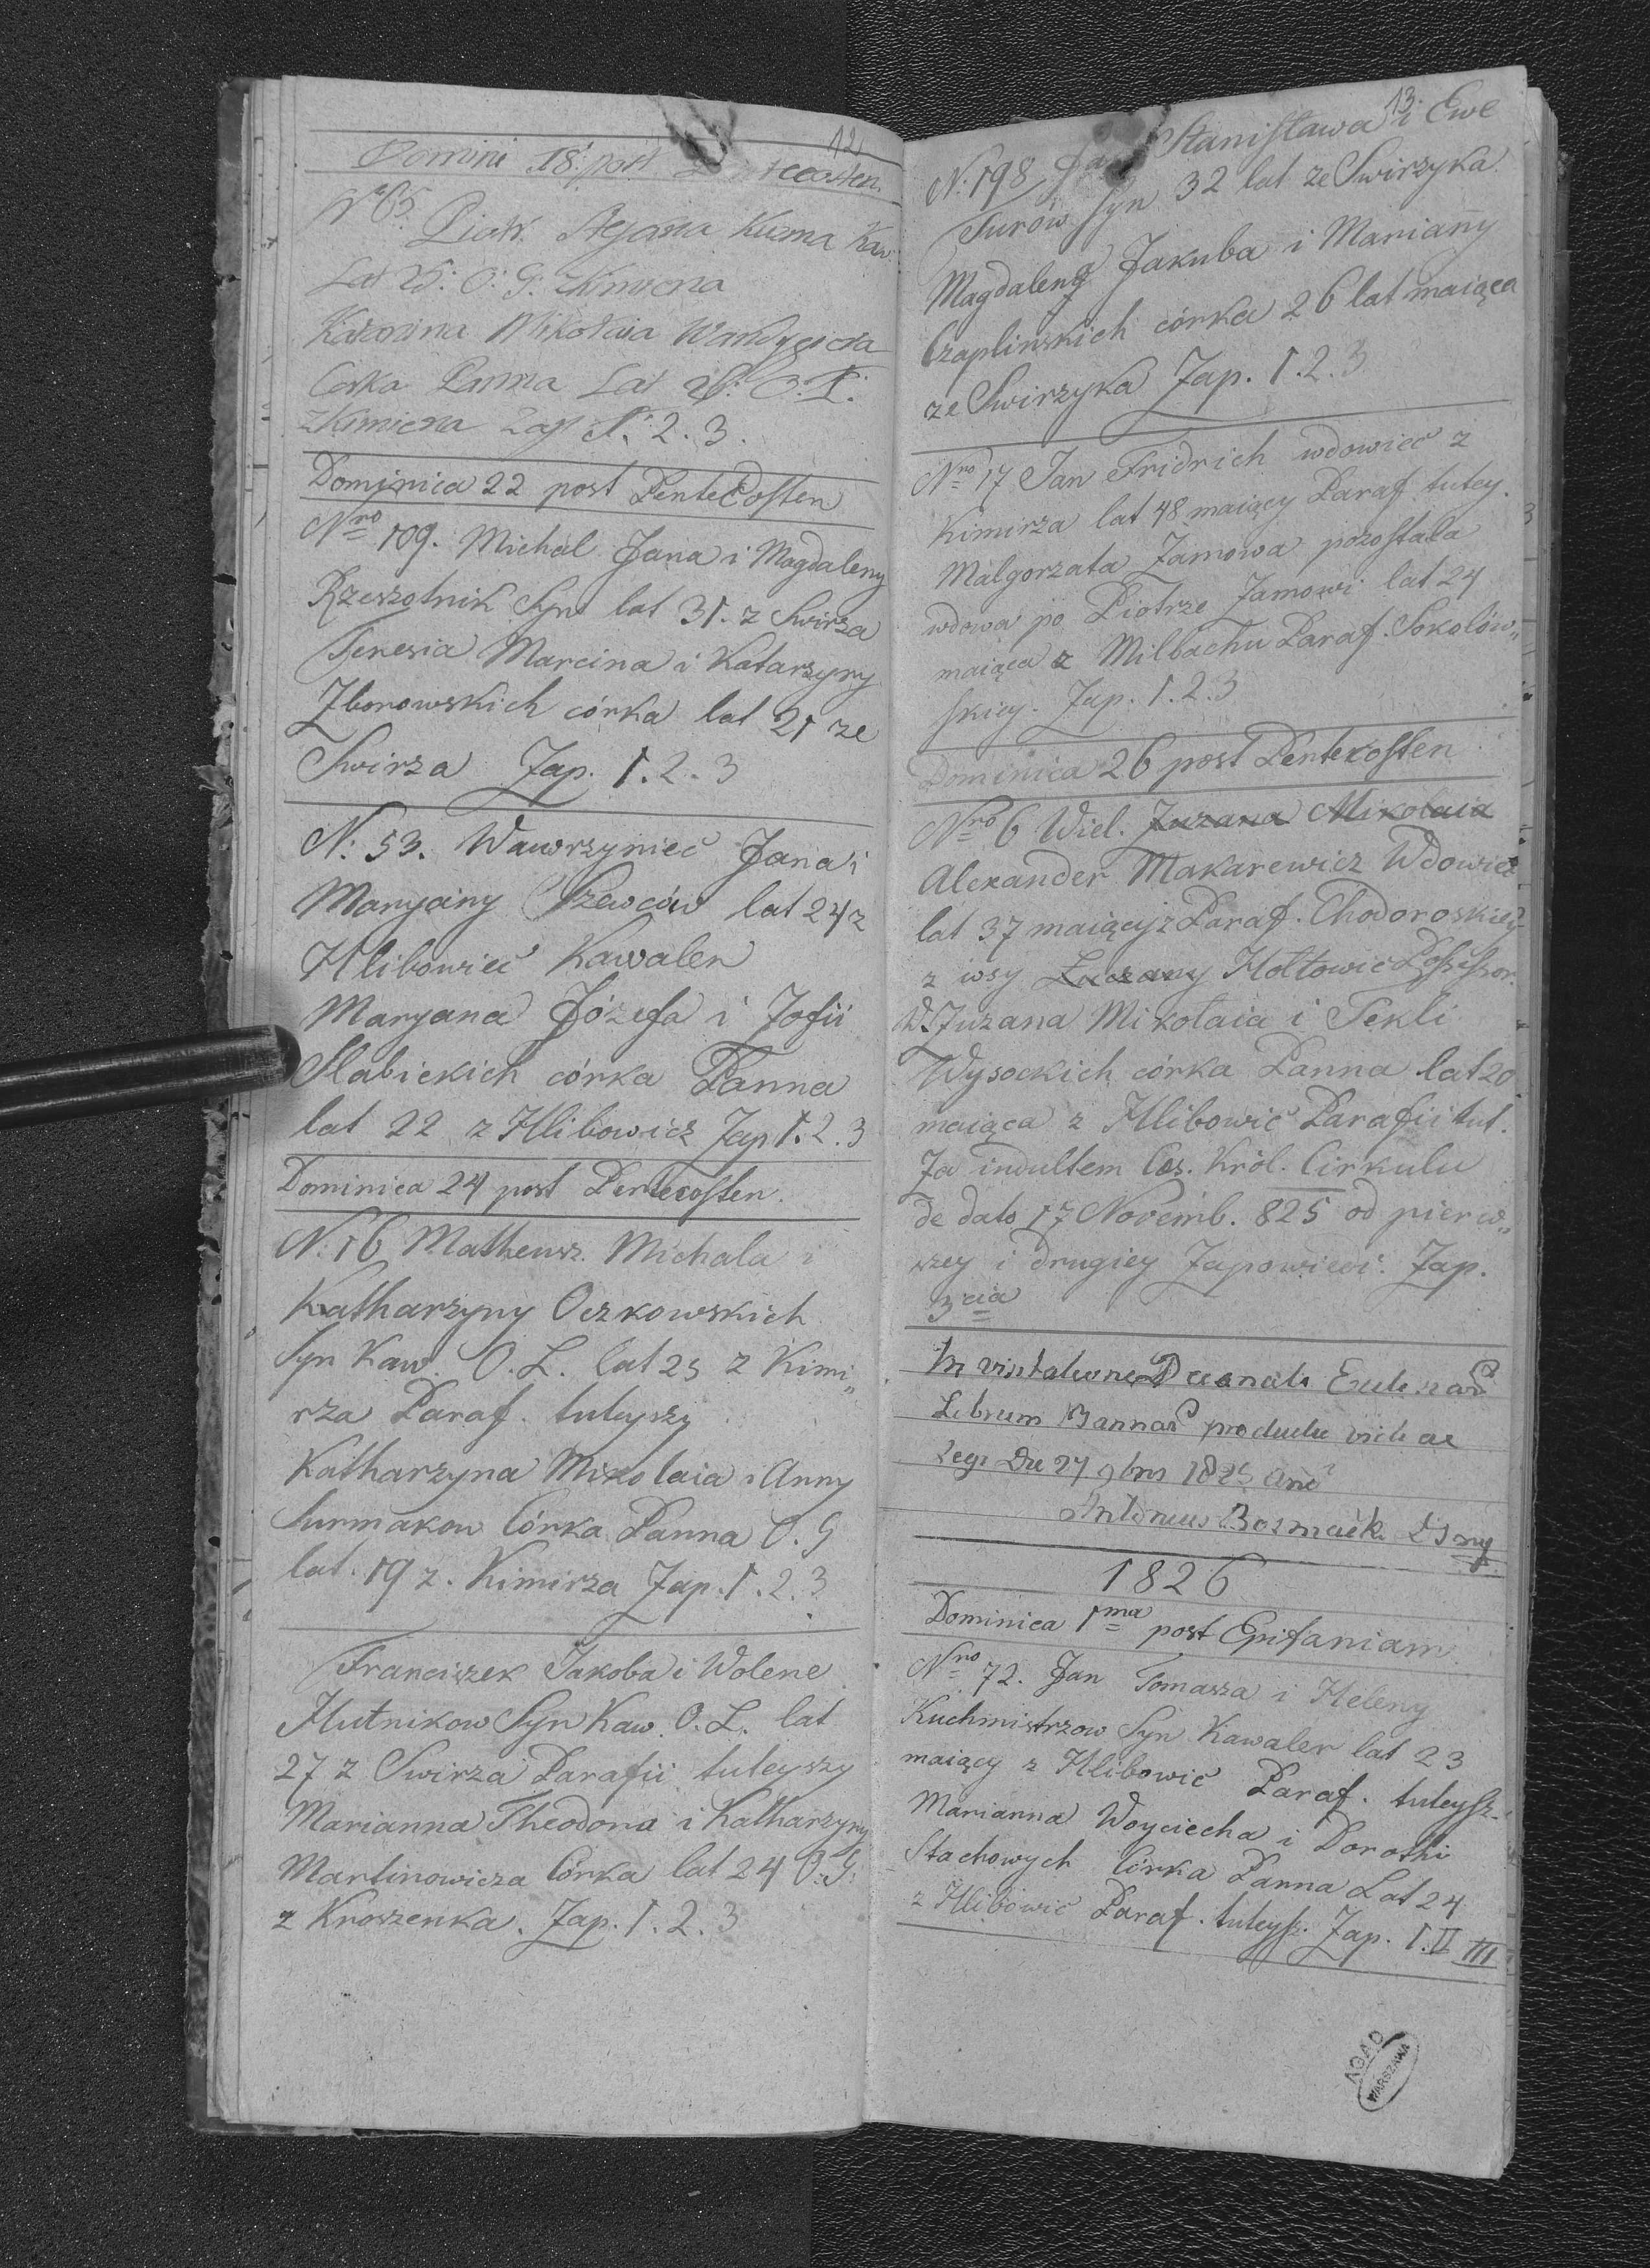 12
Domini 18: post
Nro 65. Piotr. Kuzma Kaw.
Lat 25: O: G: z Kimierza
Katarzina Mikołaia
Corka Panna Lat O. Ł.
z Kimierza Zap 1. 2. 3.
Dominica 22 post Pentecosten
Nro 109. Michal Jana i Magdaleny
Rzeszotnik Syn lat 31. z Swirza
Teresia Marcina i Katarzyny
Zborowskich córka lat 21 ze
Swirza Zap. 1. 2. 3
N: 53. Wawrzynieć Jana i
Maryany Szewców lat 24 z
Hlibowieć Kawaler
Maryana Józefa i Zofii
Słabickich córka Panna
lat 22 z Hlibowicz Zap 1. 2. 3
Dominica 24 post Pentecosten.
N: 16 Matheusz Michala i
Katharzyny Oczkowskich
Syn Kaw. O. Ł. lat 25 z Kimi„
rza Paraf. tuteyszy
Katharzyna Mikolaia i Anny
Surmakow Córka Panna O. G
lat 19 z. Kimirza Zap. 1. 2. 3
Franciszek Jakoba i Wolene
Hutnikow Syn Kaw. O. Ł. lat
27 z Swirza Parafii tuteyszy
Marianna Theodora i Katharzyny
Martinowicza Córka lat 24 O: G:
z Kroszenka. Zap. 1. 2. 3
13
N: 198 Stanisława i Ewe
Turów Syn 32 lat ze Swirzyka
Magdaleną Jakuba i Mariany
Czaplinskich córka 26 lat maiąca
ze Swirzyka Zap. 1. 2. 3
Nro 17 Jan Fridrich wdowieć z
Kimirza lat 48 maiący Paraf. tutey.
Malgorzata Jamowa pozostala
wdowa po Piotrze Jamowi lat 24
maiąca z Milbachu Paraf. Sokolów„
skiey. Zap. 1. 2. 3
Dominica 26 post Pentekosten
Nro 6 Wiel. Zuzana Mikolaia
Alexander Makarewicz Wdowiec
lat 37 maiący z Paraf. Chodoroskiey
z wsy Hołtowic Possessor.
W. Zuzana Mikołaia i Tekli
Wysockich córka Panna lat 20
maiąca z Hlibowić Parafii tut.
Za indultem Ces. Król. Cirkulu
de dato 17 Novemb. 825 od pierw„
szey i drugiey Zapowiedi. Zap.
3cia
In visitatione Decanali
Librum Bannor productu vidi ac
legi Die 27 9bris 1825 anni
Antonius
1826
Dominica 1ma post Epifaniam
Nro 72. Jan Tomasza i Heleny
Kuchmistrzow Syn Kawaler lat 23
maiący z Hlibowić Paraf. tuteysz.
Marianna Woyciecha i Dorothi
Stachowych Córka Panna Lat 24
z Hlibowić Paraf. tuteysz. Zap. I. II III
AGAD
WARSZAWA